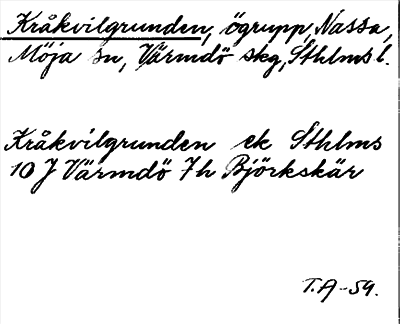 Kråkvilgrunden, ögrupp, Nassa,
Möja sn, Värmdö skg, Sthlms l.
Kråkvilgrunden ek Sthlms
10 J Värmdö 7h Björkskär
T.A-54.